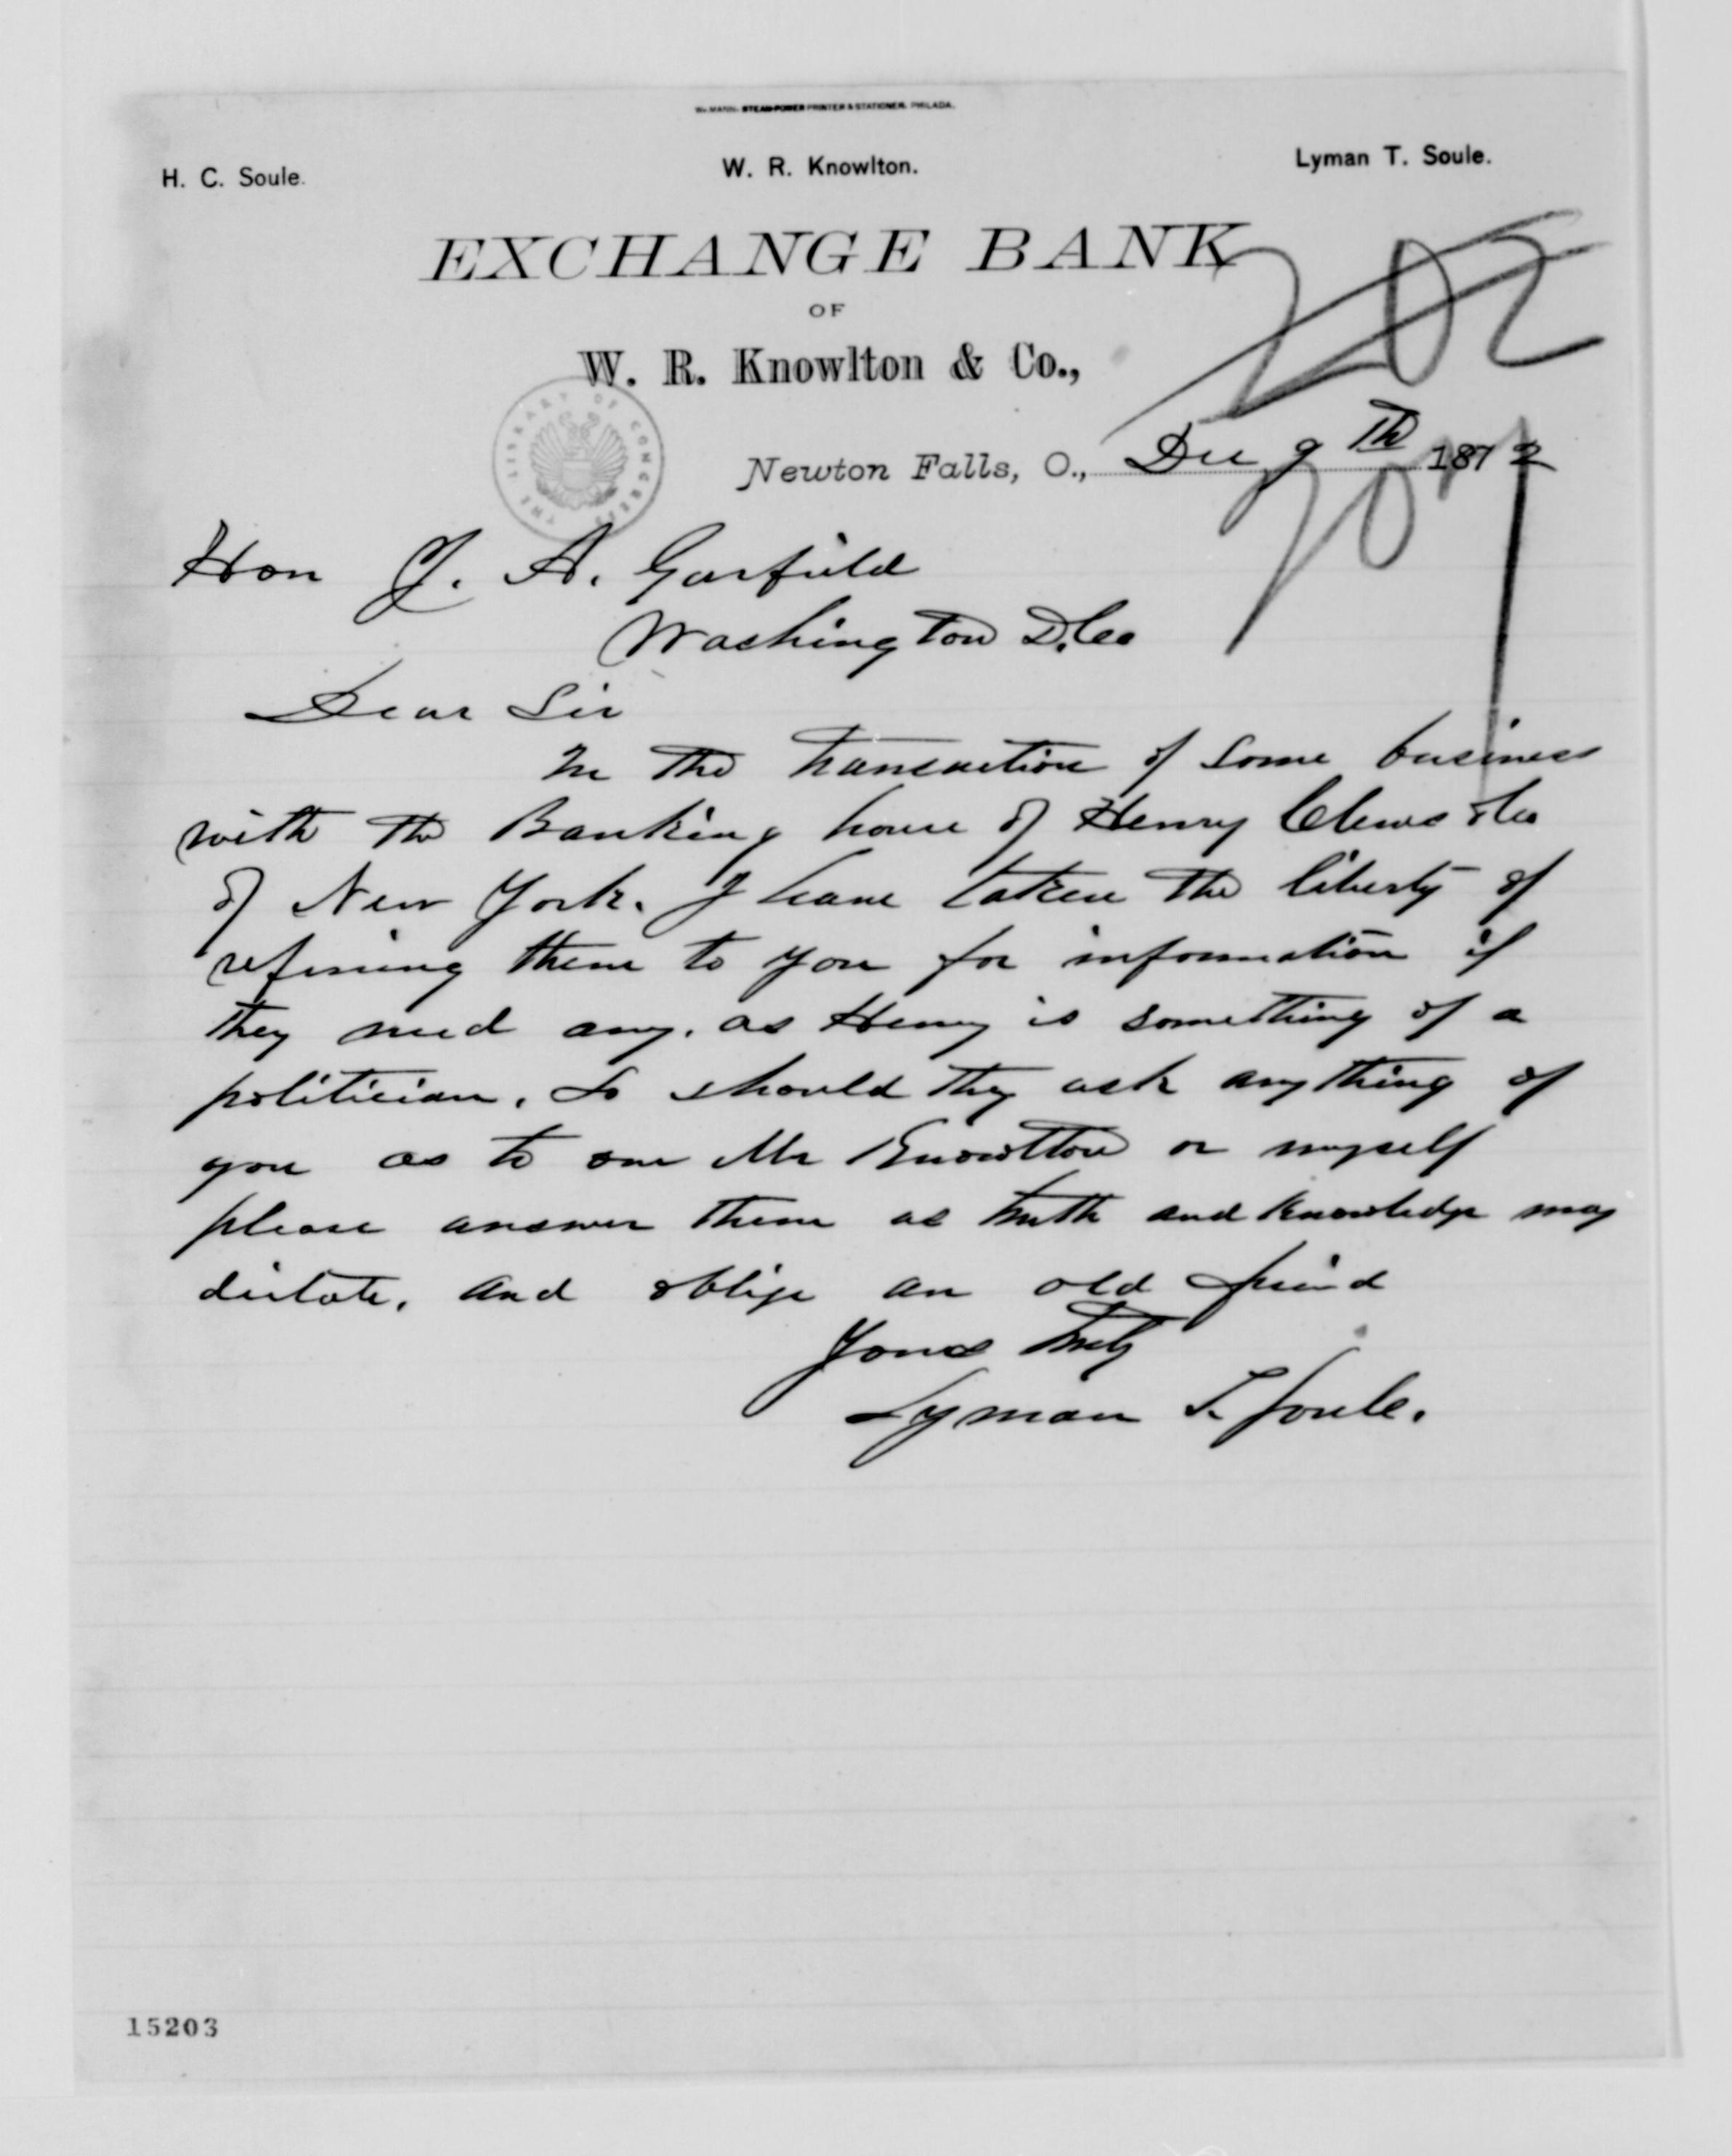 Wm MANN, STEAM-POWER PRINTER & STATIONER, PHILADA.
H. C. Soule. W. R. Knowlton. Lyman T. Soule.
EXCHANGE BANK
OF
W. R. Knowlton & Co.,
202
THE LIBRARY OF CONGRESS
Newton Falls, O., Dec 9th 1872
Hon J. A. Garfield
Washington D.C.
Dear Sir
In the transaction of some business
with the Banking house of Henry Clews & Co
of New York. I have taken the liberty of
refering them to you for information if
they need any. as Henry is something of a
politician. So should they ask any thing of
you as to our Mr Knowlton or myself
please answer them as truth and knowledge may
dictate. and oblige an old friend
Yours truly
Lyman T. Soule.
15203